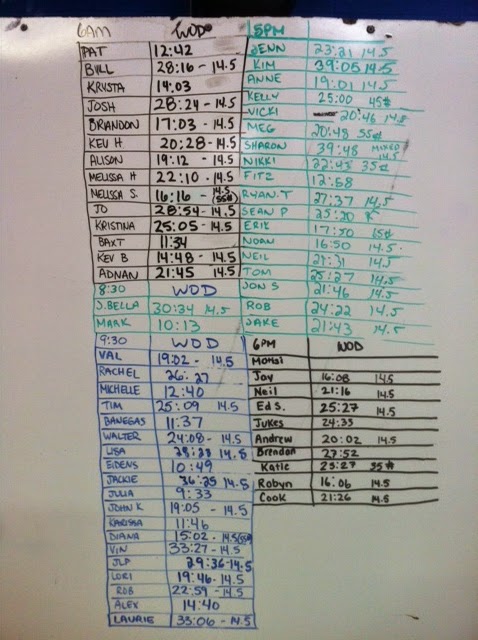 6AM WOD
PAT 12:42
BILL 28:16 - 14.5
KRYSTA 14:03
JOSH 28:24 - 14.5
BRANDON 17:03 - 14.5
KEV H 20:28 - 14.5
ALISON 19:12 - 14.5
MELISSA H 22:10 - 14.5
MELISSA S. 16:16 - 14.5 (55#)
JO 28:54 - 14.5
KRISTINA 25:05 - 14.5
BAXT 11:34
KEV B 14:48 - 14.5
ADNAN 21:45 14.5
8:30 WOD
S.BELLA 30:34 14.5
MARK 10:13
9:30 WOD
VAL 19:02 - 14.5
RACHEL 26:27
MICHELLE 12:40
TIM 25:09 14.5
BANEGAS 11:37
WALTER 24:08 - 14.5
LISA 14.5
EIDENS 10:49
JACKIE 36:25 14.5
JULIA 9:33
JOHN K 19:05 - 14.5
KARISSA 11:46
DIANA 15:02 - 14.5 (55#)
VIN 33:27 - 14.5
JLP 29:36 - 14.5
LORI 19:46 - 14.5
ROB 22:59 - 14.5
ALEX 14:40
LAURIE 33:06 - 14.5
5PM
JENN 23:21 14.5
KIM 39:05 14.5
ANNE 19:01 14.5
KELLY 25:00 45#
VICKI 20:46 14.5
MEG 20:48 55#
SHARON 39:48 MIXED 14.5
NIKKI 22:45 35#
FITZ 12:58
RYAN.T 27:37 14.5
SEAN P 25:20 R
ERIK 17:50
NOAH 16:50 14.5
NEIL 21:31 14.5
TOM 25:27 14.5
JON S 21:46 14.5
ROB 24:22 14.5
JAKE 21:43 14.5
6PM WOD
Joy 16:08 14.5
Neil 21:16 14.5
Ed S. 25:27 14.5
Jukes 24:35
Andrew 20:02 14.5
Brendan 27:52
Katie 25:27 35#
Robyn 16:06 14.5
Cook 21:26 14.5